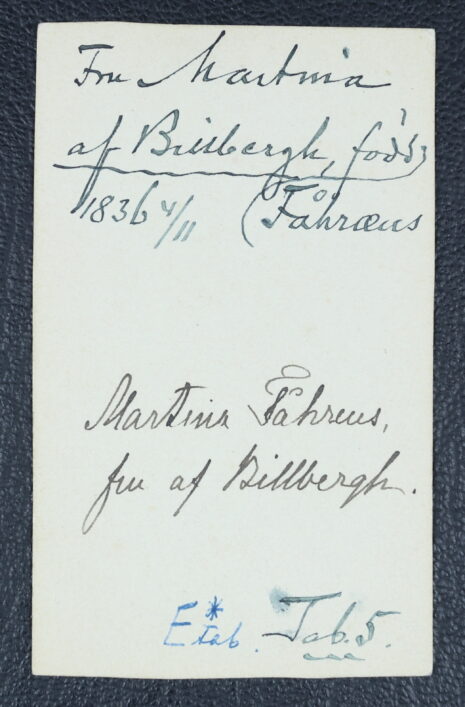 Fru Martina
af Billbergh, född
1836 4/11 (Fåhræus
Martina Fåhreus,
fru af Billbergh.
E* tab. Tab. 5.